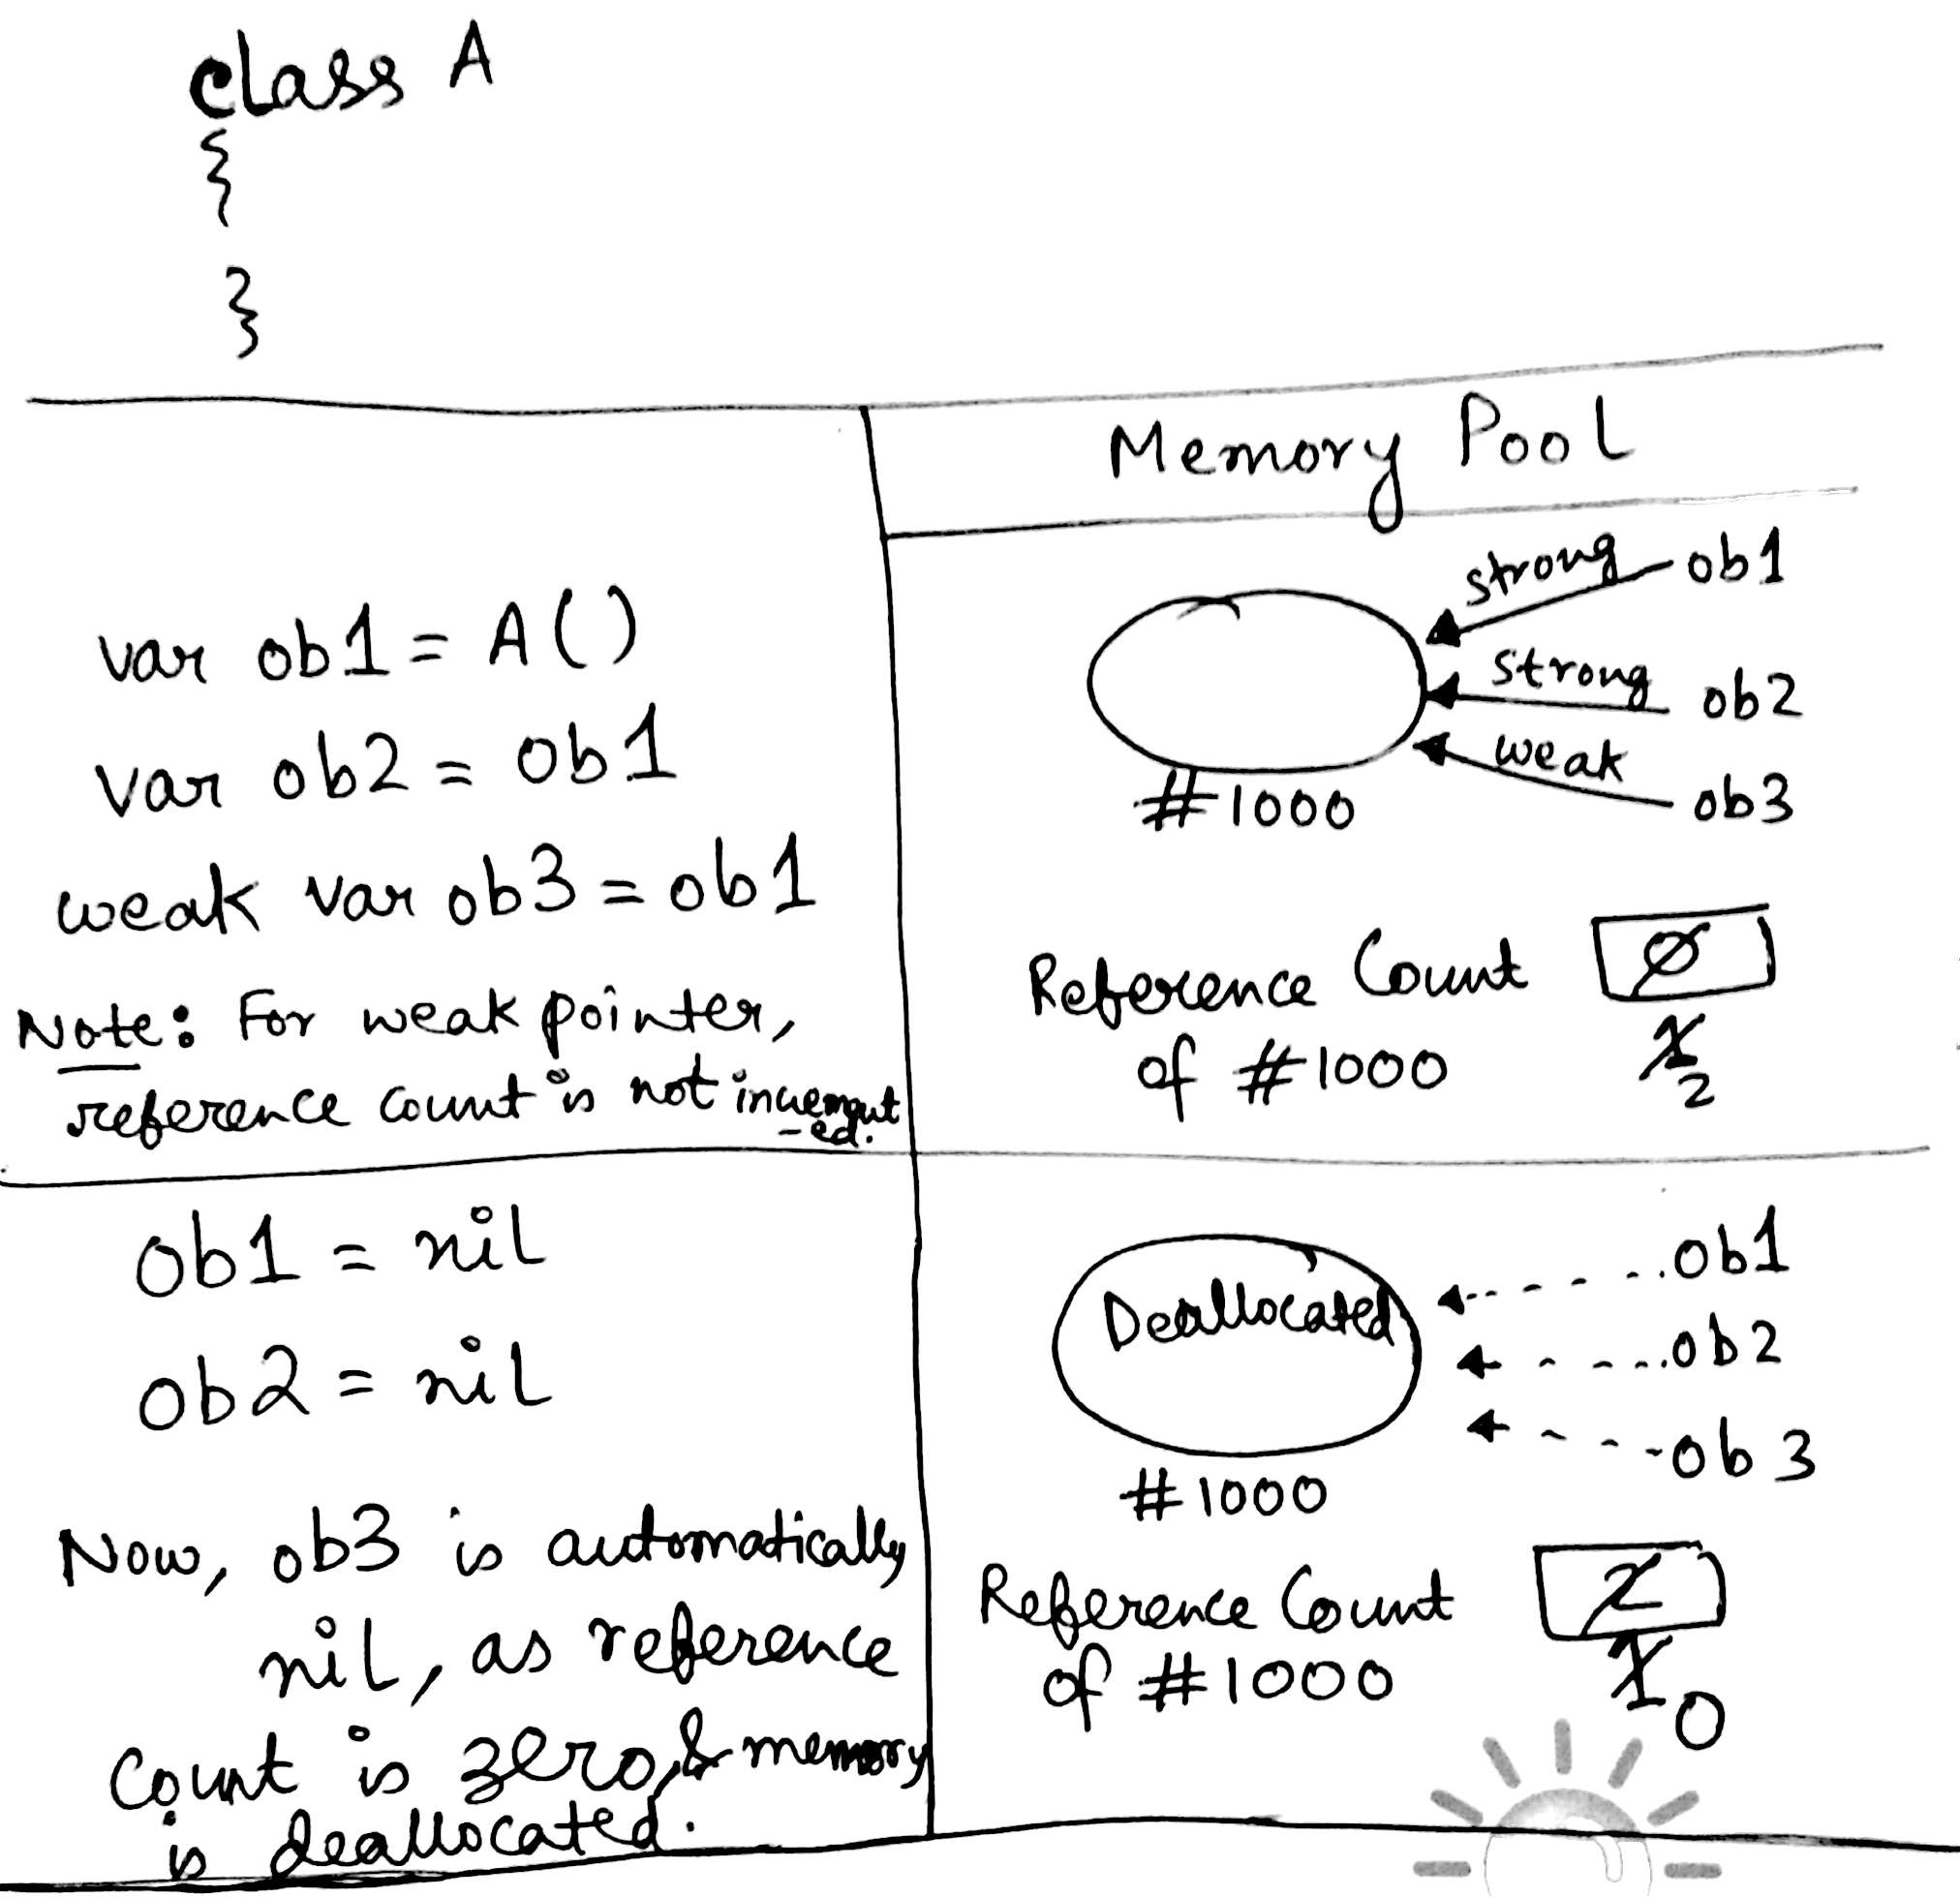 class A
{
}
Memory Pool
var ob1 = A()
var ob2 = ob1
weak var ob3 = ob1
Note: For weak pointer,
reference count is not increment
-ed.
strong ob1
strong ob2
weak ob3
#1000
Reference Count 0
of #1000 1
2
ob1 = nil
ob2 = nil
Now, ob3 is automatically
nil, as reference
count is zero & memory
is deallocated.
Deallocated
ob1
ob2
ob3
#1000
Reference Count 2
of #1000 1
0